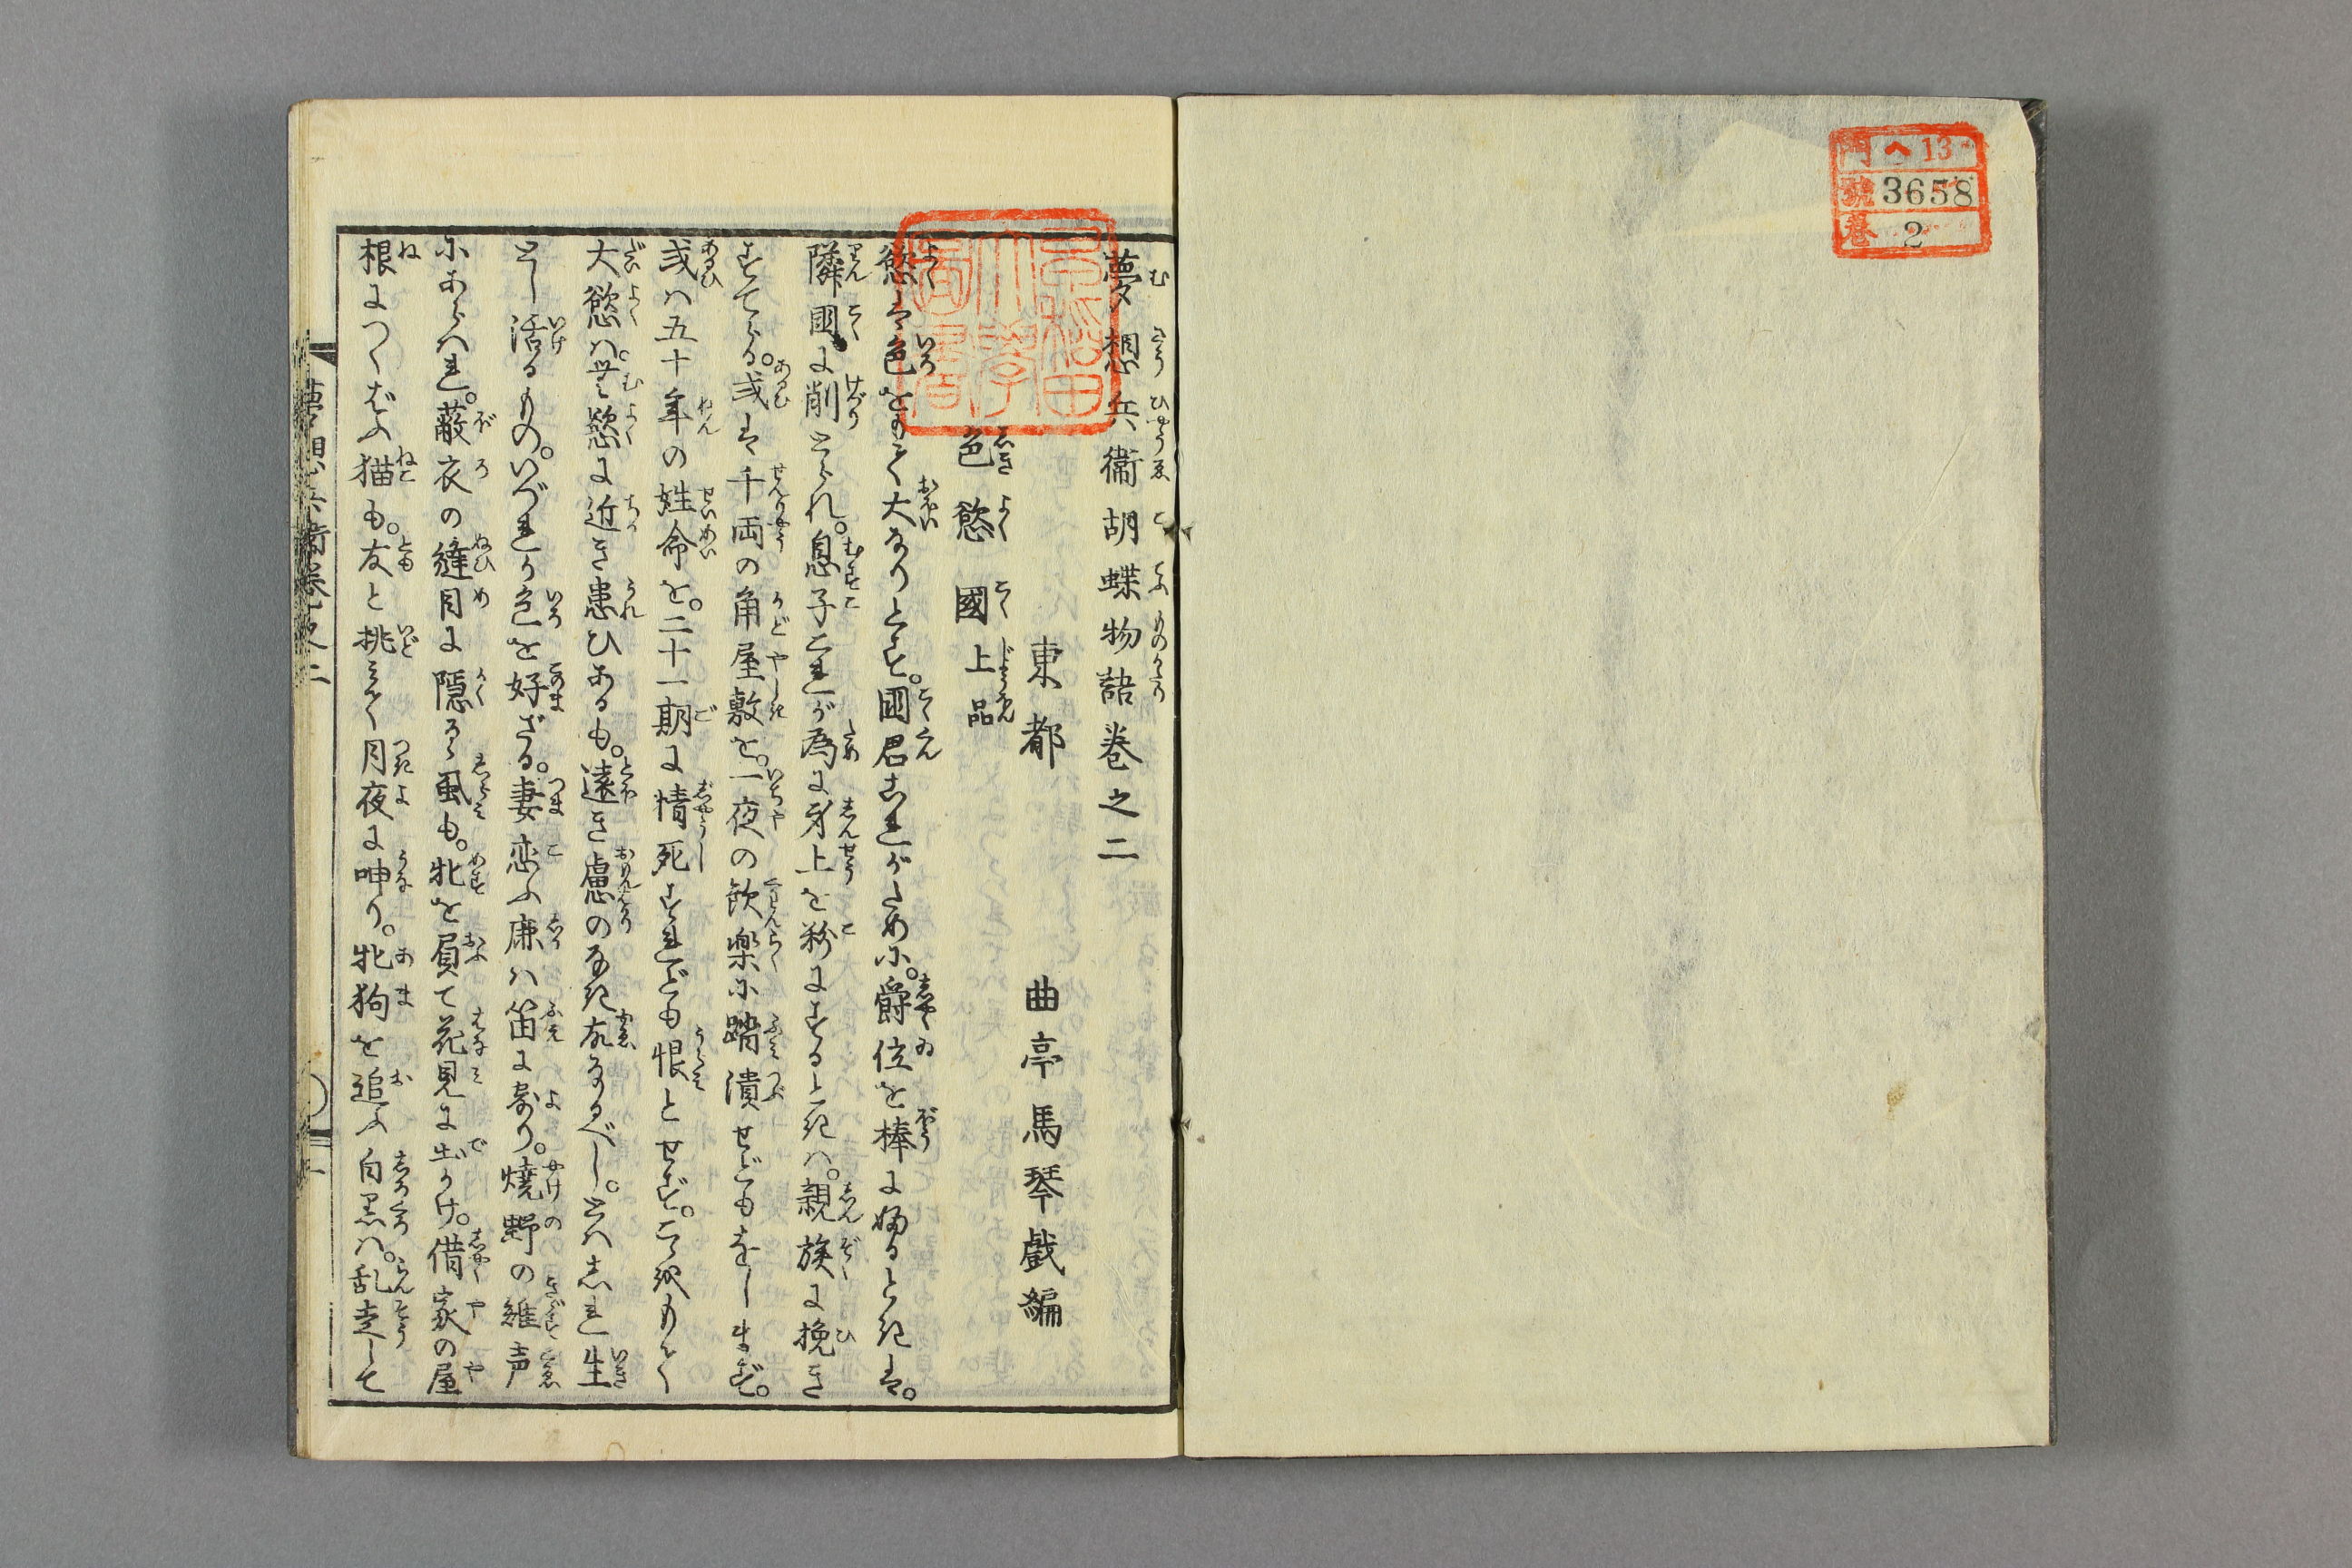 門 ヘ13
號 3658
巻 2
夢想兵衞胡蝶物語巻之二
東都 曲亭馬琴戯編
色慾國上品
早稲田大學圖書
慾は色をもて大なりとす。國君これがために。爵位を棒に婦るときは。
隣國に削とられ。息子これが為に身上を粉にするときハ。親族に挽き
すてらる。或は千両の角屋敷を。一夜の飲楽に踏潰せどもをしまず。
或ハ五十年の姓命を。二十一期に情死すれども恨とせず。こゝをもて
大慾ハ。無慾に近き患ひあるも。遠き慮のなき故なるべし。とハ志れ生
とし活るもの。いづれか色を好ざる。妻恋ふ鹿ハ笛に寄り。焼野の雉声
にあらハれ。蔽衣の縫目に隠るゝ虱も。牝を屓て花見に出かけ。借家の屋
根につくばふ猫も。友と挑みて月夜に呻り。牝狗を追ふ白黒ハ。乱走して
夢想兵衛巻之二